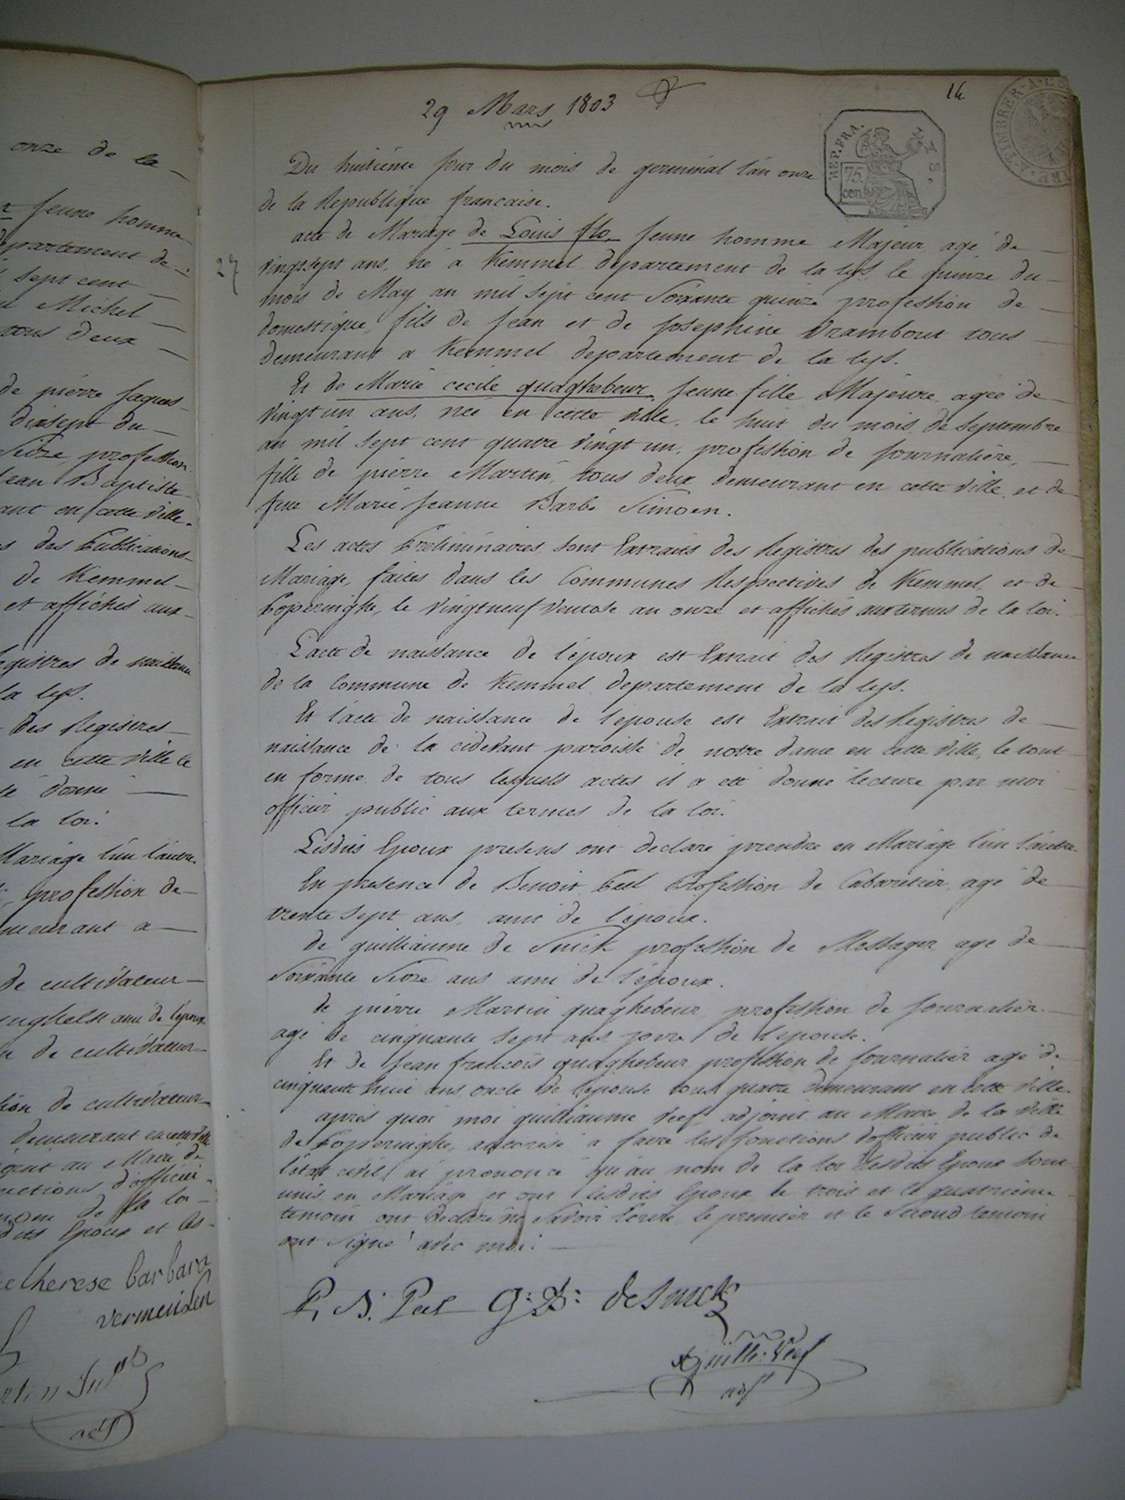 onze de la
jeune homme
département de
sept cent
Michel
tous deux
de pierre jaques
dixsept du
Seize profession
Jean Baptiste
en cette ville.
des Publications
de Kemmel
et affichés aux
Registres de naissance
la lys.
des Registres
en cette ville le
donné
la loi.
Mariage l'un l'autre.
profession de
demeurant a
de cultivateur
ami de l'epoux
de cultivateur
de cultivateur
demeurant en cette ville
au Maire de
fonctions d'officier
nom de la loi
Epoux et les
therese barbara
vermeulen
adj
29 Mars 1803
14
REP. FRA.
75
cen
TIMBRE
Du huitième jour du mois de germinal l'an onze
de la Republique francaise.
27
acte de Mariage de Louis flo, jeune homme Majeur agé de
vingt sept ans, né à Kemmel departement de la lys le quinze du
mois de May an mil sept cent Soixante quinze profession de
domestique, fils de Jean et de Josephine Drambout tous
demeurant a Kemmel departement de la lys.
Et de Marie cecile quaghebeur, jeune fille Majeure agée de
vingt un ans, née en cette ville, le huit du mois de Septembre
an mil sept cent quatre vingt un, profession de journalière,
fille de pierre Martin, tous deux demeurant en cette ville, et de
feue Marie Jeanne Barbe Timoen.
Les actes Preliminaires sont Extraits des Registres des publications de
Mariage, faites dans les Communes Respectives de Kemmel et de
Poperinghe, le vingtneuf ventose an onze et affichés aux termes de la loi.
L'acte de naissance de l'époux est Extrait des Registres de naissance
de la Commune de Kemmel departement de la lys.
Et l'acte de naissance de l'épouse est Extrait des Registres de
naissance de la cidevant paroisse de notre dame en cette ville, le tout
en forme de tous lesquels actes il a été donné lecture par moi
officier public aux termes de la loi.
Lesdits Epoux presens ont declaré prendre en Mariage l'un l'autre
En presence de Benoit Peel Profession de Cabaretier agé de
trente sept ans, ami de l'époux.
de guilliaume de Snick profession de Messager agé de
Soixante Seize ans ami de l'epoux.
de pierre Martin quaghebeur profession de journalier
agé de cinquante sept ans pere de l'epouse.
Et de Jean francois quaghebeur profession de journalier agé de
cinquante huit ans oncle de l'epouse tous quatre demeurant en cette ville
après quoi moi guilliaume Verf adjoint au Maire de la ville
de Poperinghe, autorisé a faire les fonctions d'officier public de
l'etat civil, ai prononcé qu'au nom de la loi lesdits Epoux sont
unis en Mariage et ont lesdits Epoux le trois et le quatrième
temoin ont declaré ne Savoir Ecrire le premier et le Second temoin
ont Signé avec moi.
P. B. Peel G: D: de Snick
Guille. Verf
adj